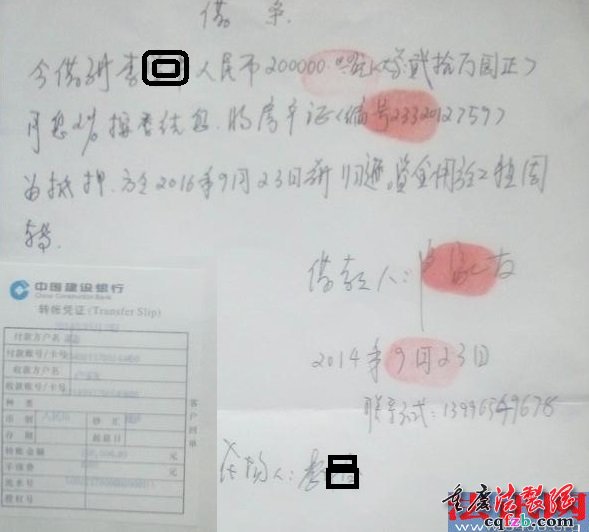 借条
今借到李 人民币200000.00元(大写贰拾万圆正)
月息2%按季结息,将房产证(编号2332012759)
为抵押,于2016年9月23日前归还,资金用途工程周
转.
借款人:
2014年9月23日
联系方式:13996549678
担物人:李
中国建设银行
China Construction Bank
转账凭证(Transfer Slip)
付款方户名
付款账号/卡号
收款方户名
收款账号/卡号
种类
币别 人民币 钞汇
存期 起息日
转账金额 元
手续费 元
流水号
授权号
客户回单
重庆法制网
cqfzb.com